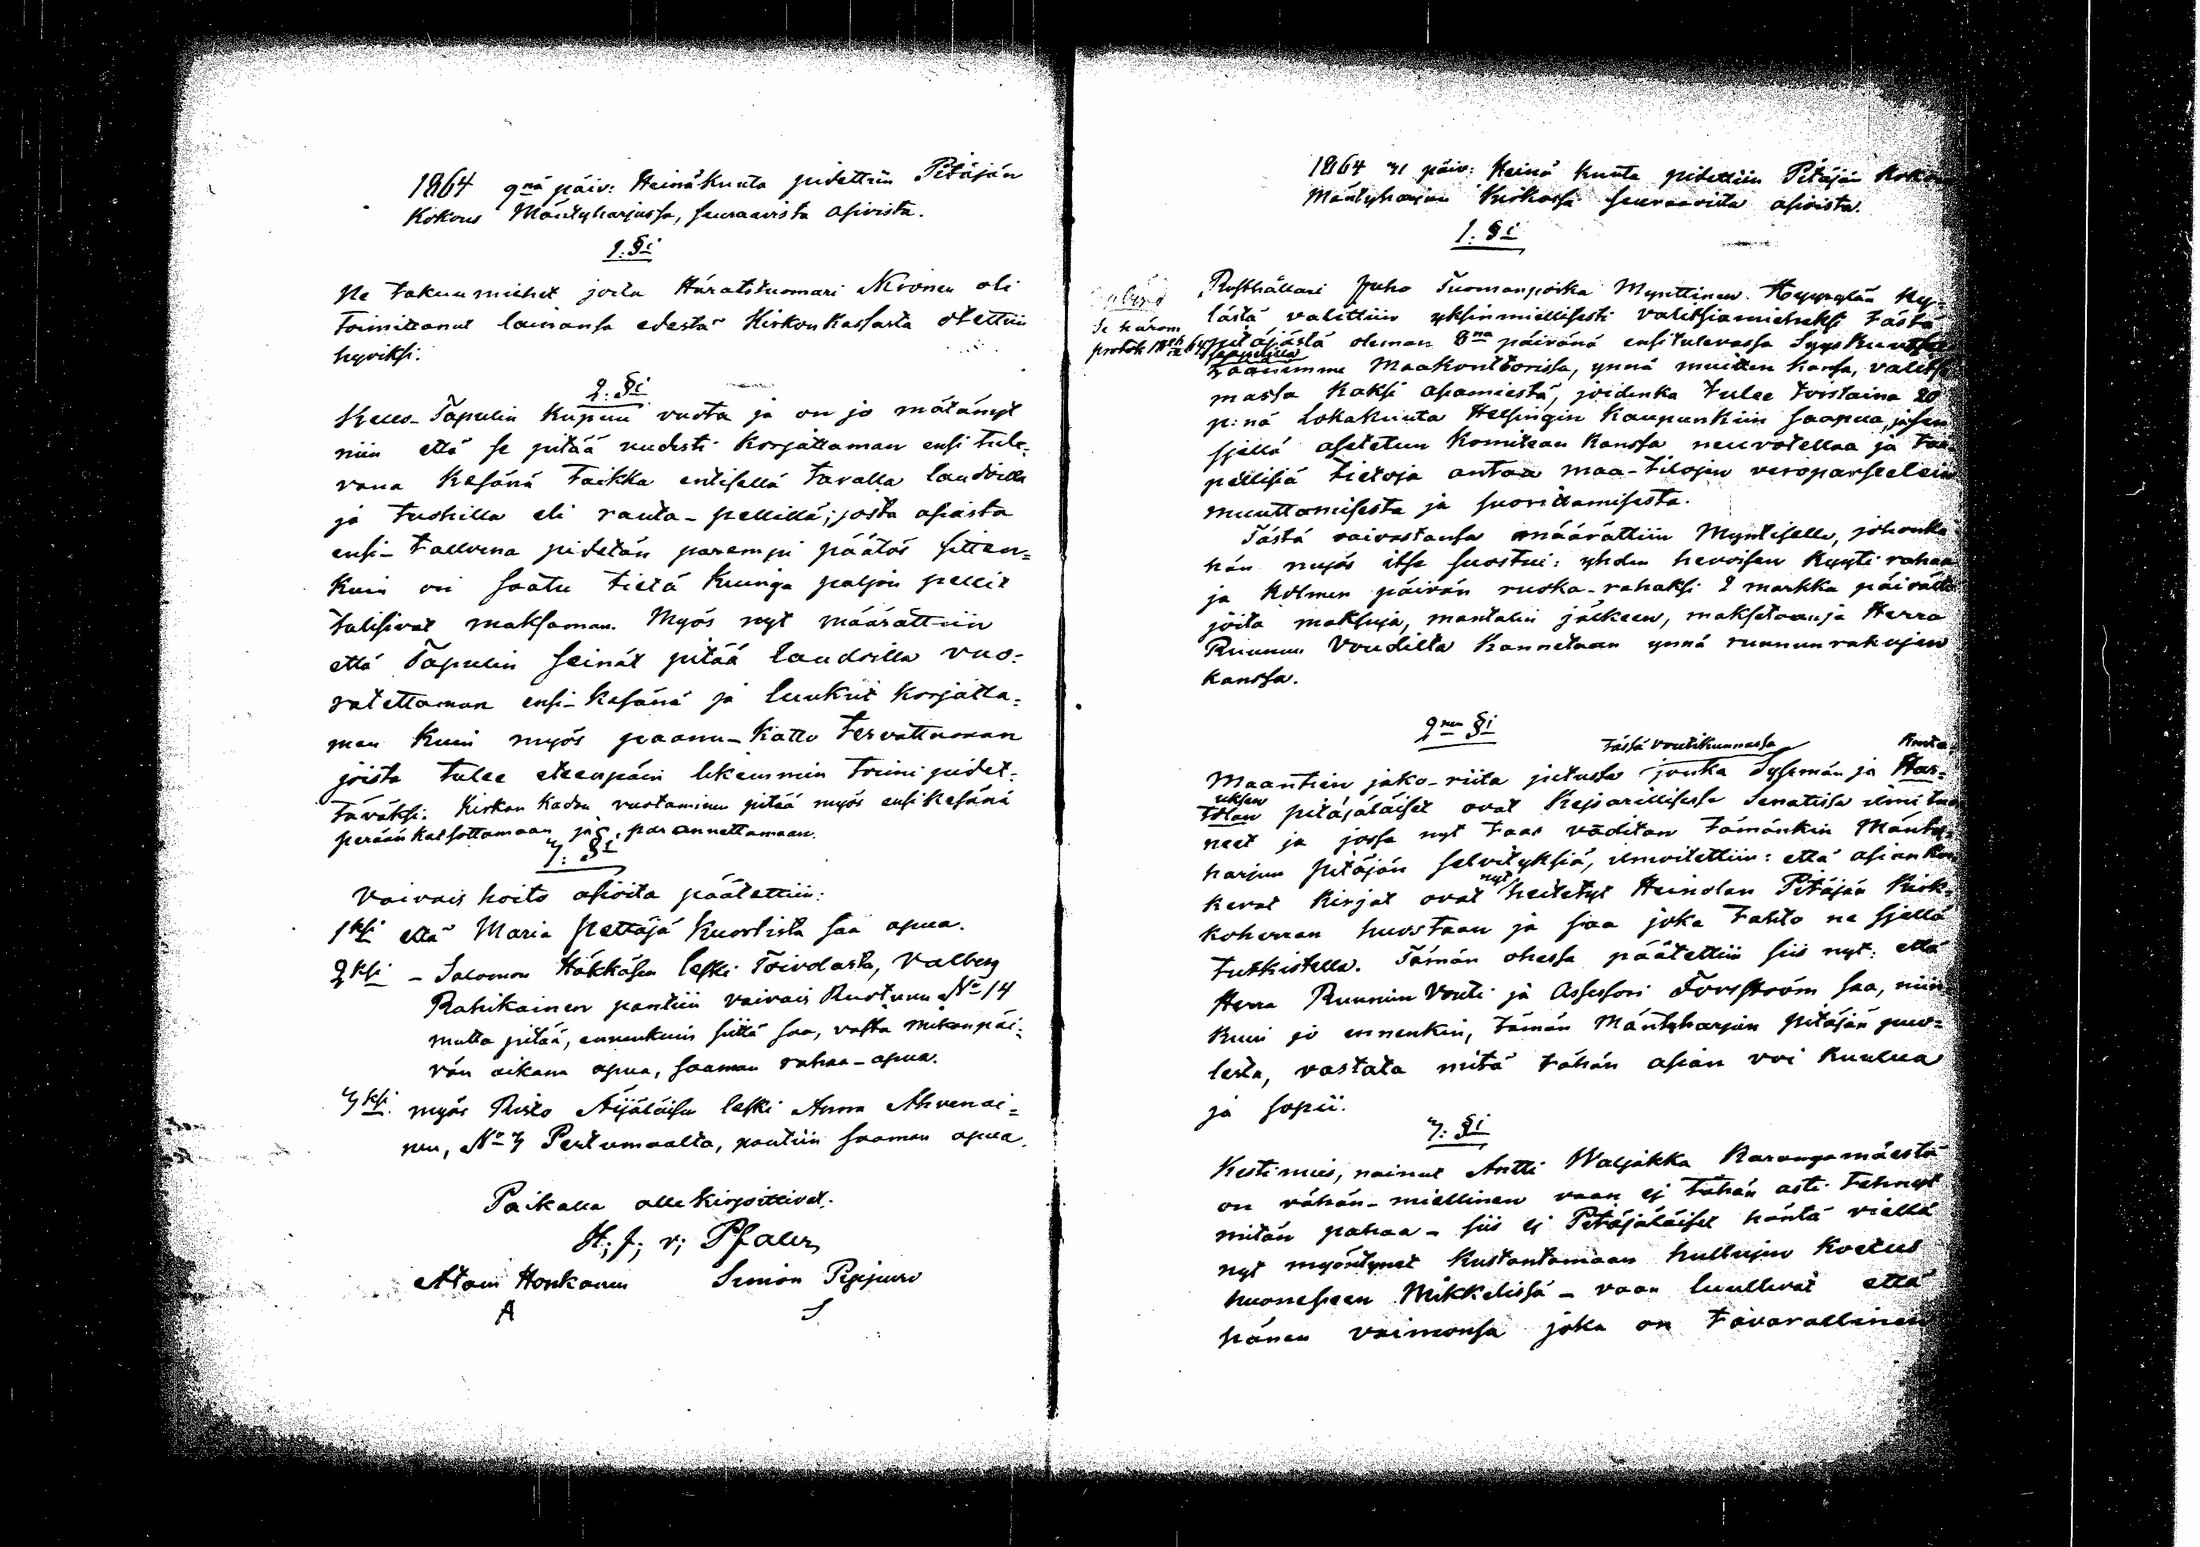 1864 9nä päiv: Heinäkuuta pidettiin Pitäjän
Kokous Mäntyharjussa, seuraavista asioista.
1. §i
Ne takuumiehet joita Häratstuomari Nironen oli
toimittanut lainansa edestä Kirkonkassasta otettiin
hyviksi.
2. §i
Tapulin kupuu vuota ja on jo mätänyt
niin että se pitää uudesti korjattaman ensi tule-
vana kesänä taikka entisellä tavalla laudoilla
ja tuohilla eli rauta-pellillä; josta asiasta
ensi-talvena pidetän parempi päätös sitten-
kuin on saatu tietä kuinga paljon pellit
tulisivat maksaman. Myös nyt määrättiin
että Tapulin seinät pitää laudoilla vuo-
ratettaman ensi-kesänä ja luukut korjatta-
man kuin myös paanu-katto tervattaman
joista tulee eteenpäin likemmin toimi pidet-
täväksi. Kirkon kadon vuotaminen pitää myös ensi kesänä
perään katsottamaan ja parannettamaan.
3. §i
Vaivais hoito asioita päätettiin:
1ksi että Maria Pettäjä Kuortista saa apua.
2ksi - Salomon Häkkäsen leski Toivolasta, Valberg
Rahikainen pantiin vaivais Ruotuun No 14
mutta pitää, ennenkuin siitä saa, vasta Mikonpäi-
vän aikana apua, saaman rahaa-apua.
3ksi myös Risto Äijäläisen leski Anna Ahvenai-
nen, No 3 Pertumaalta, pantiin saaman apua.
Paikalla allekirjoittivat.
H; J; v; Pfaler
Atam Honkanen Simon Pypjurro
A S
1864 31 päiv: Heinä kuuta pidettiin Pitäjän Kokous
Mäntyharjun Kirkossa seuraavista asioista.
1. §i
Se härom
protok
Rusthållari Juho Tuomanpoika Mynttinen Hyyrylän ky-
lästä valittiin yksinmiellisesti valitsiamieheksi tästä
pitäjästä oleman 8na päivänä ensitulevassa Syyskuussa
Läänimme Maakonttorissa, ynnä muitten kansa, valitse-
massa kaksi asiamiestä, joidenka tulee toistaina 20
p:nä lokakuuta Helsingin Kaupunkiin saapua, ja sen
sjellä asetetun Komitean kanssa neuvotellaa ja tar-
pellisiä tietoja antaa maa-tilojen veroparseelein
muuttamisesta ja suorittamisesta.
Tästä vaivastansa määrättiin Myntiselle, johonka
hän myös itse suostui: yhden hevoisen kyyti rahan
ja kolmen päivän ruoka-rahaksi 2 markka päivältä
joita maksuja, mantalin jälkeen, maksetaan ja Herra
Ruunun Voudilta kannetaan ynnä ruununrahojen
kanssa.
2nen §i
tässä voutikunnassa
Maantien jako-riita jutussa jonka Sysmän ja Har-
tolan pitäjäläiset ovat Kejsarillisessa Senatissa ilmi tuo-
neet ja jossa nyt taas väditan tämänkin Mänty-
harjun pitäjän selvityksiä, ilmoitettiin: että asian kos-
kevat kirjat ovat nyt heitetyt Heinolan Pitäjän Kirk-
koherran huostaan ja saa joka tahto ne sjellä
tutkistella. Tämän ohessa päätettiin siis nyt: että
Herra Ruunun Vouti ja Assessori Forsström saa, niin
kuin jo ennenkin, tämän Mäntyharjun pitäjän puo-
lesta, vastata mitä tähän asian voi kuulua
ja sopii.
3. §i
Kesti mies, nainut Antti Waljakka Karangamäestä
on vähän-miellinen vaan ej tähän asti tehnyt
mitän pahaa - siis ej Pitäjäläiset häntä viellä
nyt myöntynet kustantamaan hullujen koetus
huoneseen Mikkelissä - vaan luullivat että
hänen vaimonsa joka on tavarallinen